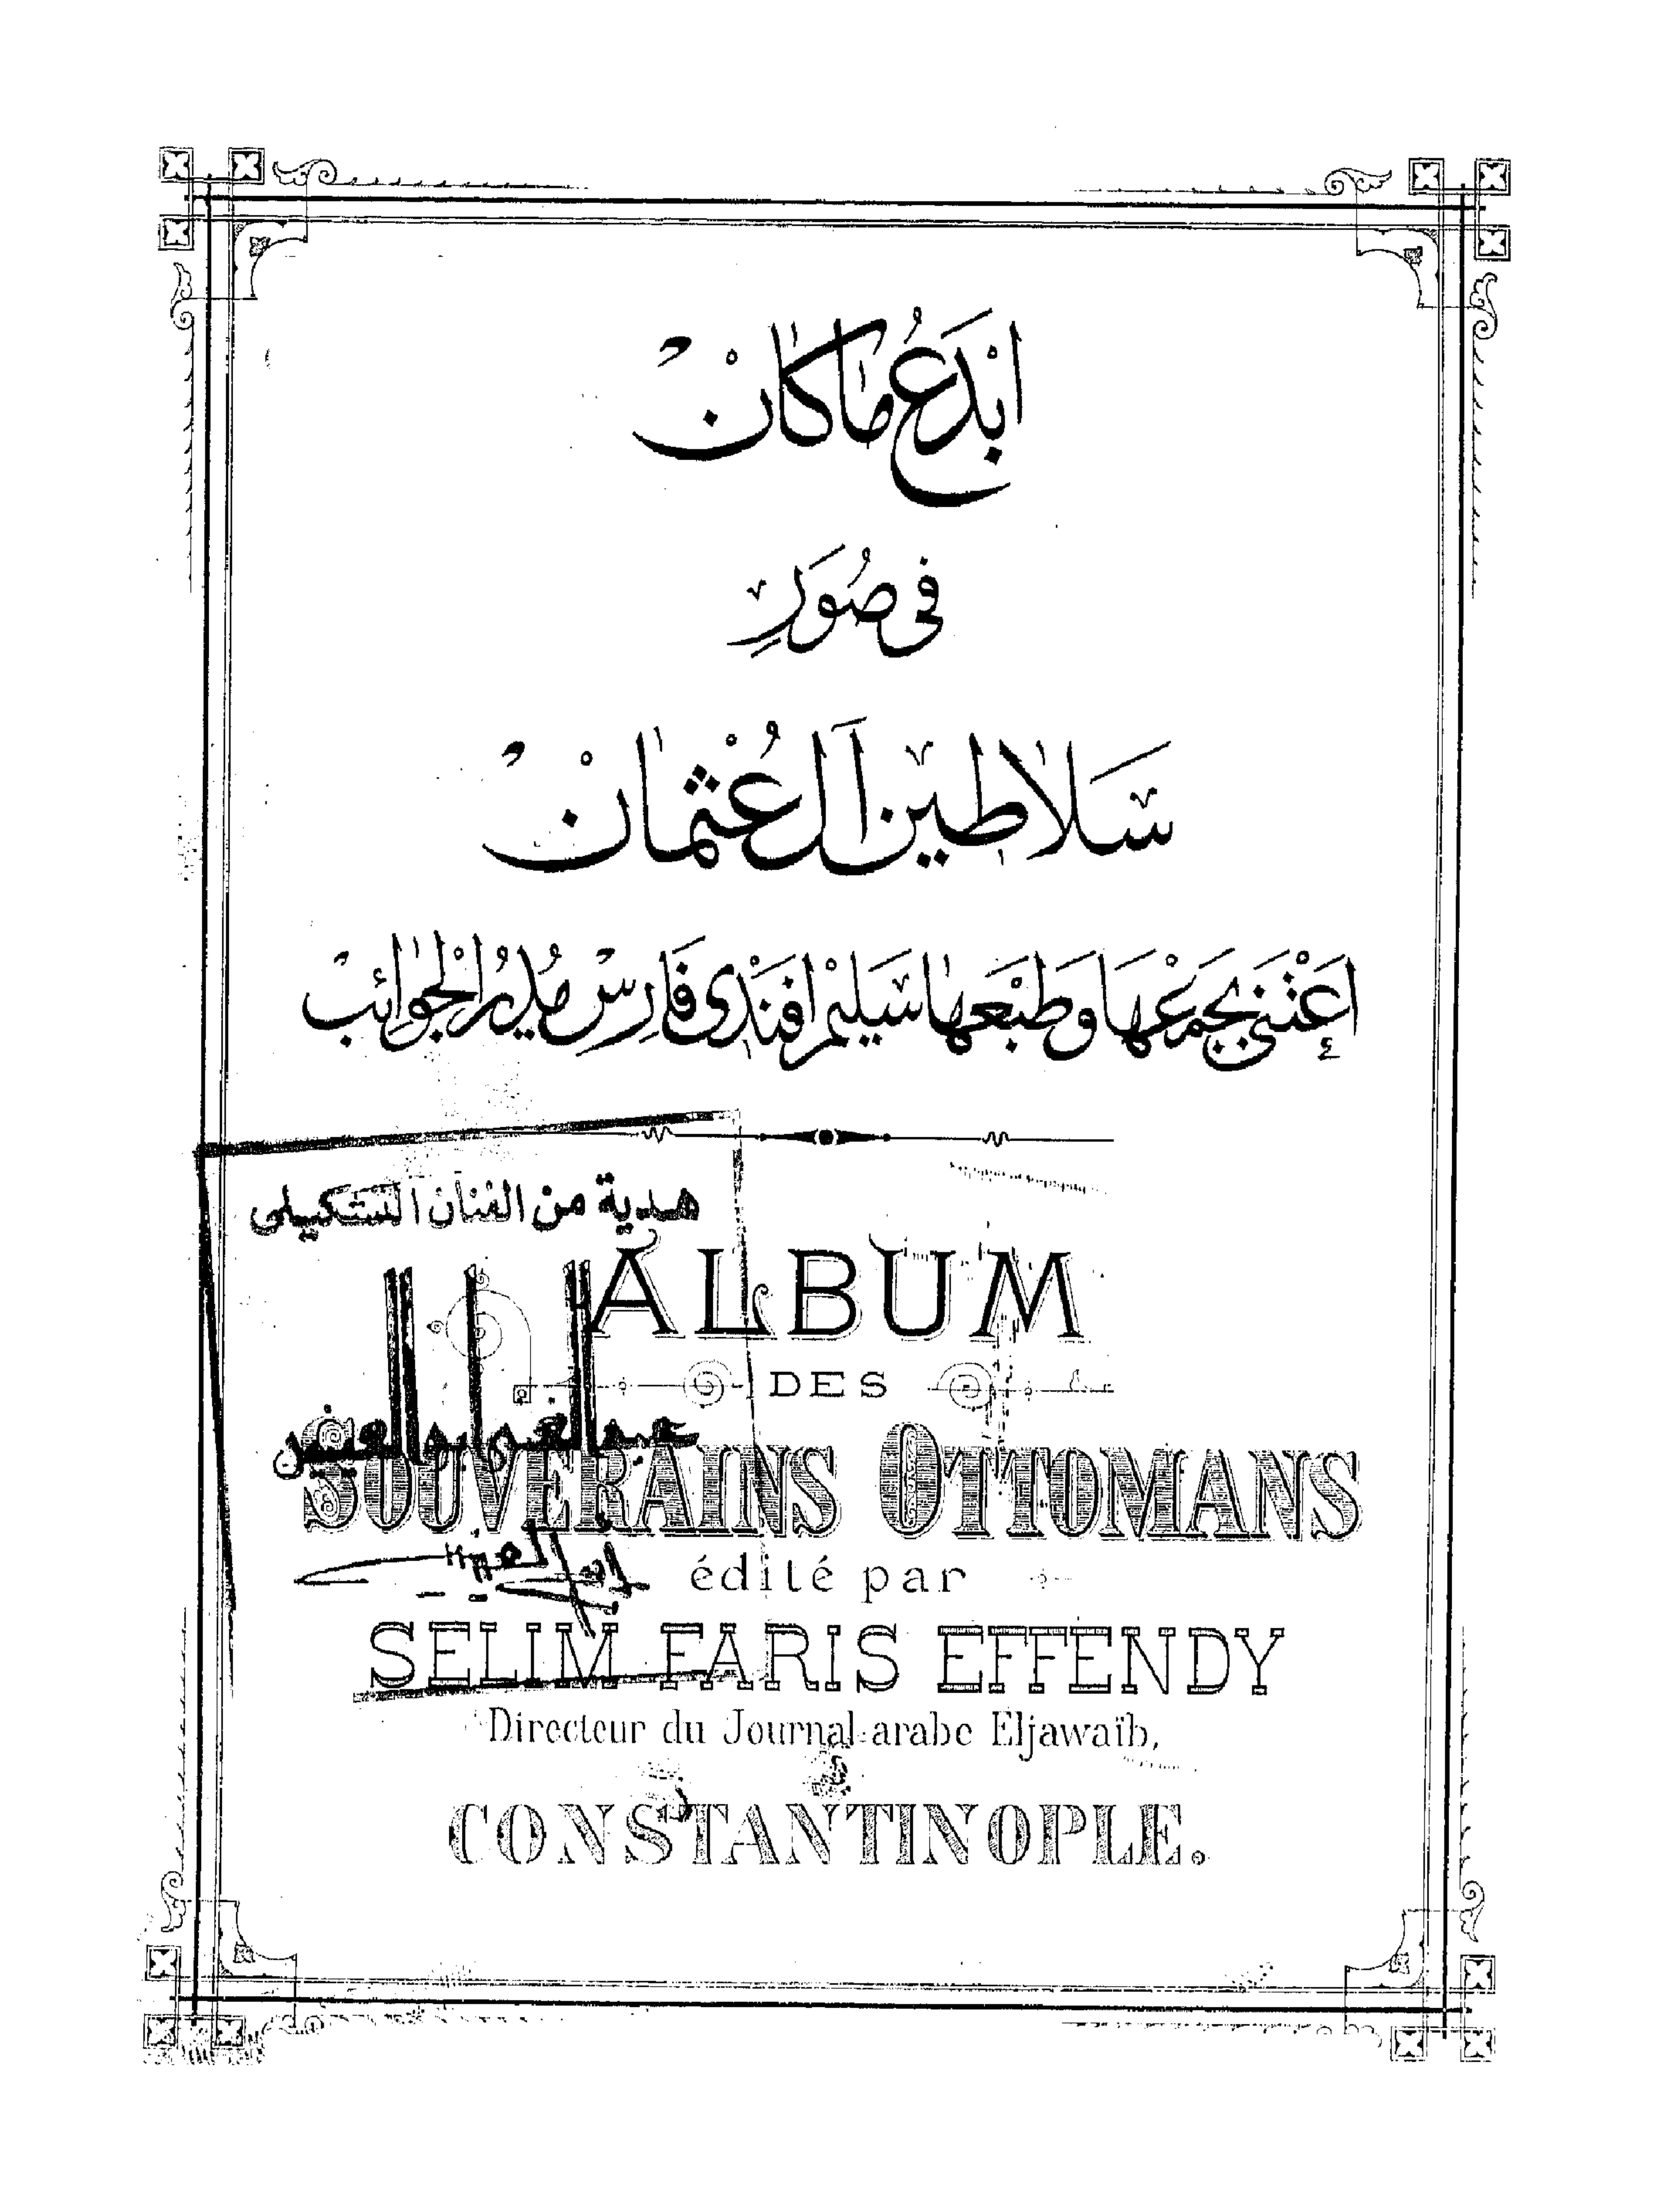 ابْدَعُ مَا كَانْ
فى صُوَرِ
سَلَاطين آل عُثْمانْ
إعْتَنى بجَمْعْهَا وَطَبْعَها سَليمْ افَنْدى فَارِسْ مُديرُ الْجَوائِبْ
هدية من الفنان التشكيلى
ALBUM
DES
SOUVERAINS OTTOMANS
édité par
SELIM FARIS EFFENDY
Directeur du Journal arabe Eljawaïb,
CONSTANTINOPLE.